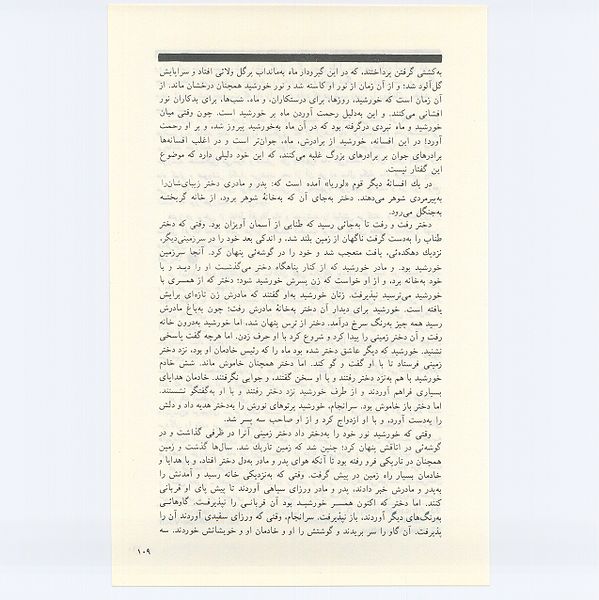 به‌کشتی گرفتن پرداختند، که در این گیرودار ماه به‌مانداب پرگل ولائی افتاد و سراپایش
گل‌آلود شد؛ و از آن زمان از نور او کاسته شد و نور خورشید همچنان درخشان ماند. از
آن زمان است که خورشید، روزها، برای درستکاران، و ماه، شب‌ها، برای بدکاران نور
افشانی می‌کنند. و این به‌دلیل رحمت آوردن ماه بر خورشید است. چون وقتی میان
خورشید و ماه نبردی درگرفته بود که در آن ماه به‌خورشید پیروز شد، و بر او رحمت
آورد! در این افسانه، خورشید از برادرش، ماه، جوان‌تر است و در اغلب افسانه‌ها
برادرهای جوان بر برادرهای بزرگ غلبه می‌کنند، که این خود دلیلی دارد که موضوع
این گفتار نیست.
در یك افسانهٔ دیگر قوم «لوریا» آمده است که: پدر و مادری دختر زیبای‌شان‌را
به‌پیرمردی شوهر می‌دهند. دختر به‌جای آن که به‌خانهٔ شوهر برود، از خانه گریخته
به‌جنگل می‌رود.
دختر رفت و رفت تا به‌جائی رسید که طنابی از آسمان آویزان بود. وقتی که دختر
طناب را به‌دست گرفت ناگهان از زمین بلند شد، و اندکی بعد خود را در سرزمینی‌دیگر،
نزدیك دهکده‌ئی، یافت متعجب شد و خود را در گوشه‌ئی پنهان کرد. آنجا سرزمین
خورشید بود. و مادر خورشید که از کنار پناهگاه دختر می‌گذشت او را دید و با
خود به‌خانه برد، و از او خواست که زن پسرش خورشید شود؛ دختر که از همسری با
خورشید می‌ترسید نپذیرفت. زنان خورشید به‌او گفتند که مادرش زن تازه‌ای برایش
یافته است. خورشید برای دیدار آن دختر به‌خانهٔ مادرش رفت؛ چون به‌باغ مادرش
رسید همه چیز به‌رنگ سرخ درآمد. دختر از ترس پنهان شد، اما خورشید به‌درون خانه
رفت و آن دختر زمینی را پیدا کرد و شروع کرد با او حرف زدن، اما هرچه گفت پاسخی
نشنید. خورشید که دیگر عاشق دختر شده بود ماه را که رئیس خادمان او بود، نزد دختر
زمینی فرستاد تا با او گفت و گو کند. اما دختر همچنان خاموش ماند. شش خادم
خورشید با هم به‌نزد دختر رفتند و با او سخن گفتند، و جوابی نگرفتند. خادمان هدایای
بسیاری فراهم آوردند و از طرف خورشید نزد دختر رفتند و با او به‌گفتگو نشستند.
اما دختر باز خاموش بود. سرانجام، خورشید پرتوهای نورش را به‌دختر هدیه داد و دلش
را به‌دست آورد، و با او ازدواج کرد و از او صاحب سه پسر شد.
وقتی که خورشید نور خود را به‌دختر داد دختر زمینی آنرا در ظرفی گذاشت و در
گوشه‌ئی در اتاقش پنهان کرد؛ چنین شد که زمین تاریك شد. سال‌ها گذشت و زمین
همچنان در تاریکی فرو رفته بود تا آنکه هوای پدر و مادر به‌دل دختر افتاد، و با هدایا و
خادمان بسیار راه زمین در پیش گرفت. وقتی که به‌نزدیکی خانه رسید و آمدنش را
به‌پدر و مادرش خبر دادند، پدر و مادر ورزای سیاهی آوردند تا پیش پای او قربانی
کنند. اما دختر که اکنون همسر خورشید بود آن قربانی را نپذیرفت. گاوهائی
به‌رنگ‌های دیگر آوردند، باز نپذیرفت. سرانجام، وقتی که ورزای سفیدی آوردند آن را
پذیرفت. آن گاو را سر بریدند و گوشتش را او و خادمان او و خویشانش خوردند. سه
۱۰۹